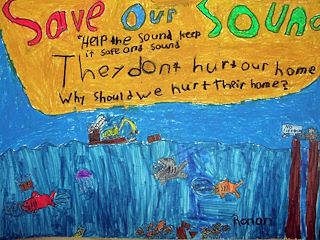 Save Our Sound
"HELP the sound keep
it safe and sound
They dont hurt our home
Why should we hurt their home?
Ronan